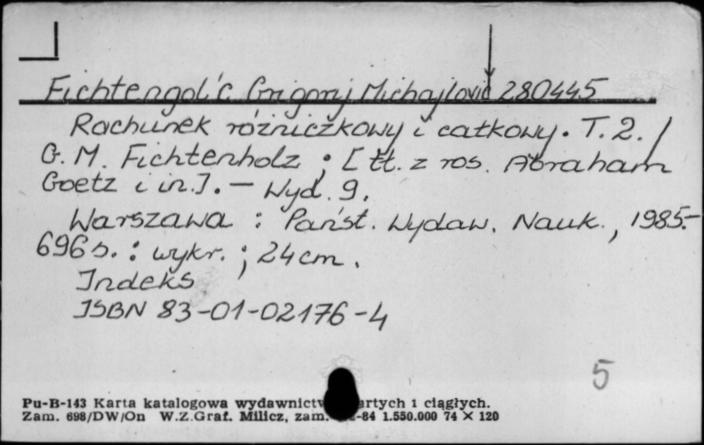 Fichtengol'c Grigorij Michajlovič 280445
Rachunek różniczkowy i całkowy. T. 2. /
G. M. Fichtenholz ; [tł. z ros. Abraham
Goetz i in.]. — Wyd. 9.
Warszawa : Państ. Wydaw. Nauk., 1985.-
696 s. : wykr. ; 24 cm.
Indeks
ISBN 83-01-02176-4
5
Pu-B-143 Karta katalogowa wydawnictw i ciągłych.
Zam. 698/DW/On W.Z.Graf. Milicz, zam. -84 1.550.000 74 × 120